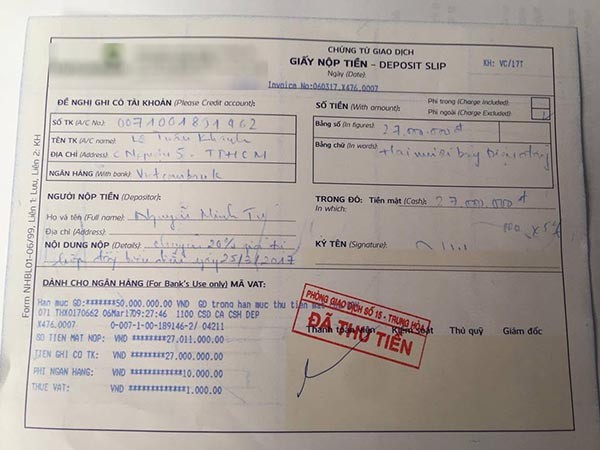 CHỨNG TỪ GIAO DỊCH
GIẤY NỘP TIỀN – DEPOSIT SLIP
KH: VC/17T
Ngày (Date):
Invoice No:060317.X476.0007
ĐỀ NGHỊ GHI CÓ TÀI KHOẢN (Please Credit account):
SỐ TIỀN (With amount):
Phí trong (Charge Included)
Phí ngoài (Charge Excluded)
SỐ TK (A/C No.): 0071001831962
Bằng số (In figures): 27.000.000đ
TÊN TK (A/C name): Lê Tuấn Khanh
Bằng chữ (In words): Hai mươi bảy triệu đồng
ĐỊA CHỈ (Address): TPHCM
NGÂN HÀNG (With bank): Vietcombank
NGƯỜI NỘP TIỀN (Depositor):
TRONG ĐÓ: Tiền mặt (Cash): 27.000.000đ
In which:
Họ và tên (Full name): Nguyễn Minh
Địa chỉ (Address)
NỘI DUNG NỘP (Details): chuyển 20% giá trị
KÝ TÊN (Signature):
hợp đồng ngày 25/3/2017
DÀNH CHO NGÂN HÀNG (For Bank's Use only) MÃ VAT:
Han muc GD:*******50.000.000.00 VND GD trong han muc thu tien
071 THX0170662 06Mar1709:27:46 1100 CSD CA CSH DEP
X476.0007 0-007-1-00-189146-2/ 04211
SO TIEN MAT NOP: VND ********27,011.000.00
TIEN GHI CO TK: VND ********27,000.000.00
PHI NGAN HANG: VND ***********10,000.00
THUE VAT: VND ************1.000.00
PHÒNG GIAO DỊCH SỐ 15 - TRUNG HÒA
ĐÃ THU TIỀN
Thanh toán viên Kiểm soát Thủ quỹ Giám đốc
Form NHBL01-06/99, Liên 1: Lưu, Liên 2: KH